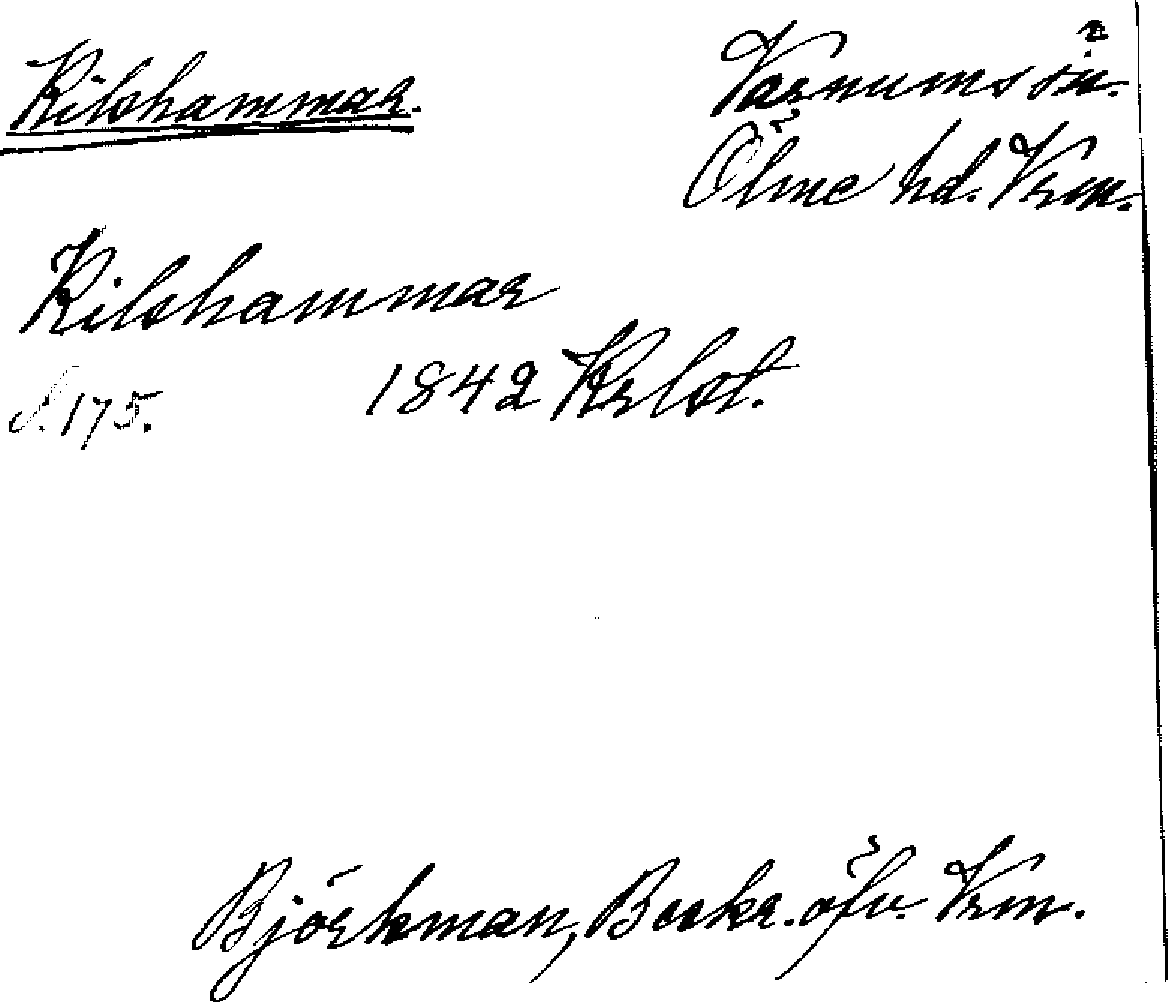 Kilshammar.
Varnums sn.
Ölme hd. Vrm.
Kilshammar
S. 175. 1842 Krlst.
Björkman, Beskr. öfv. Vrm.